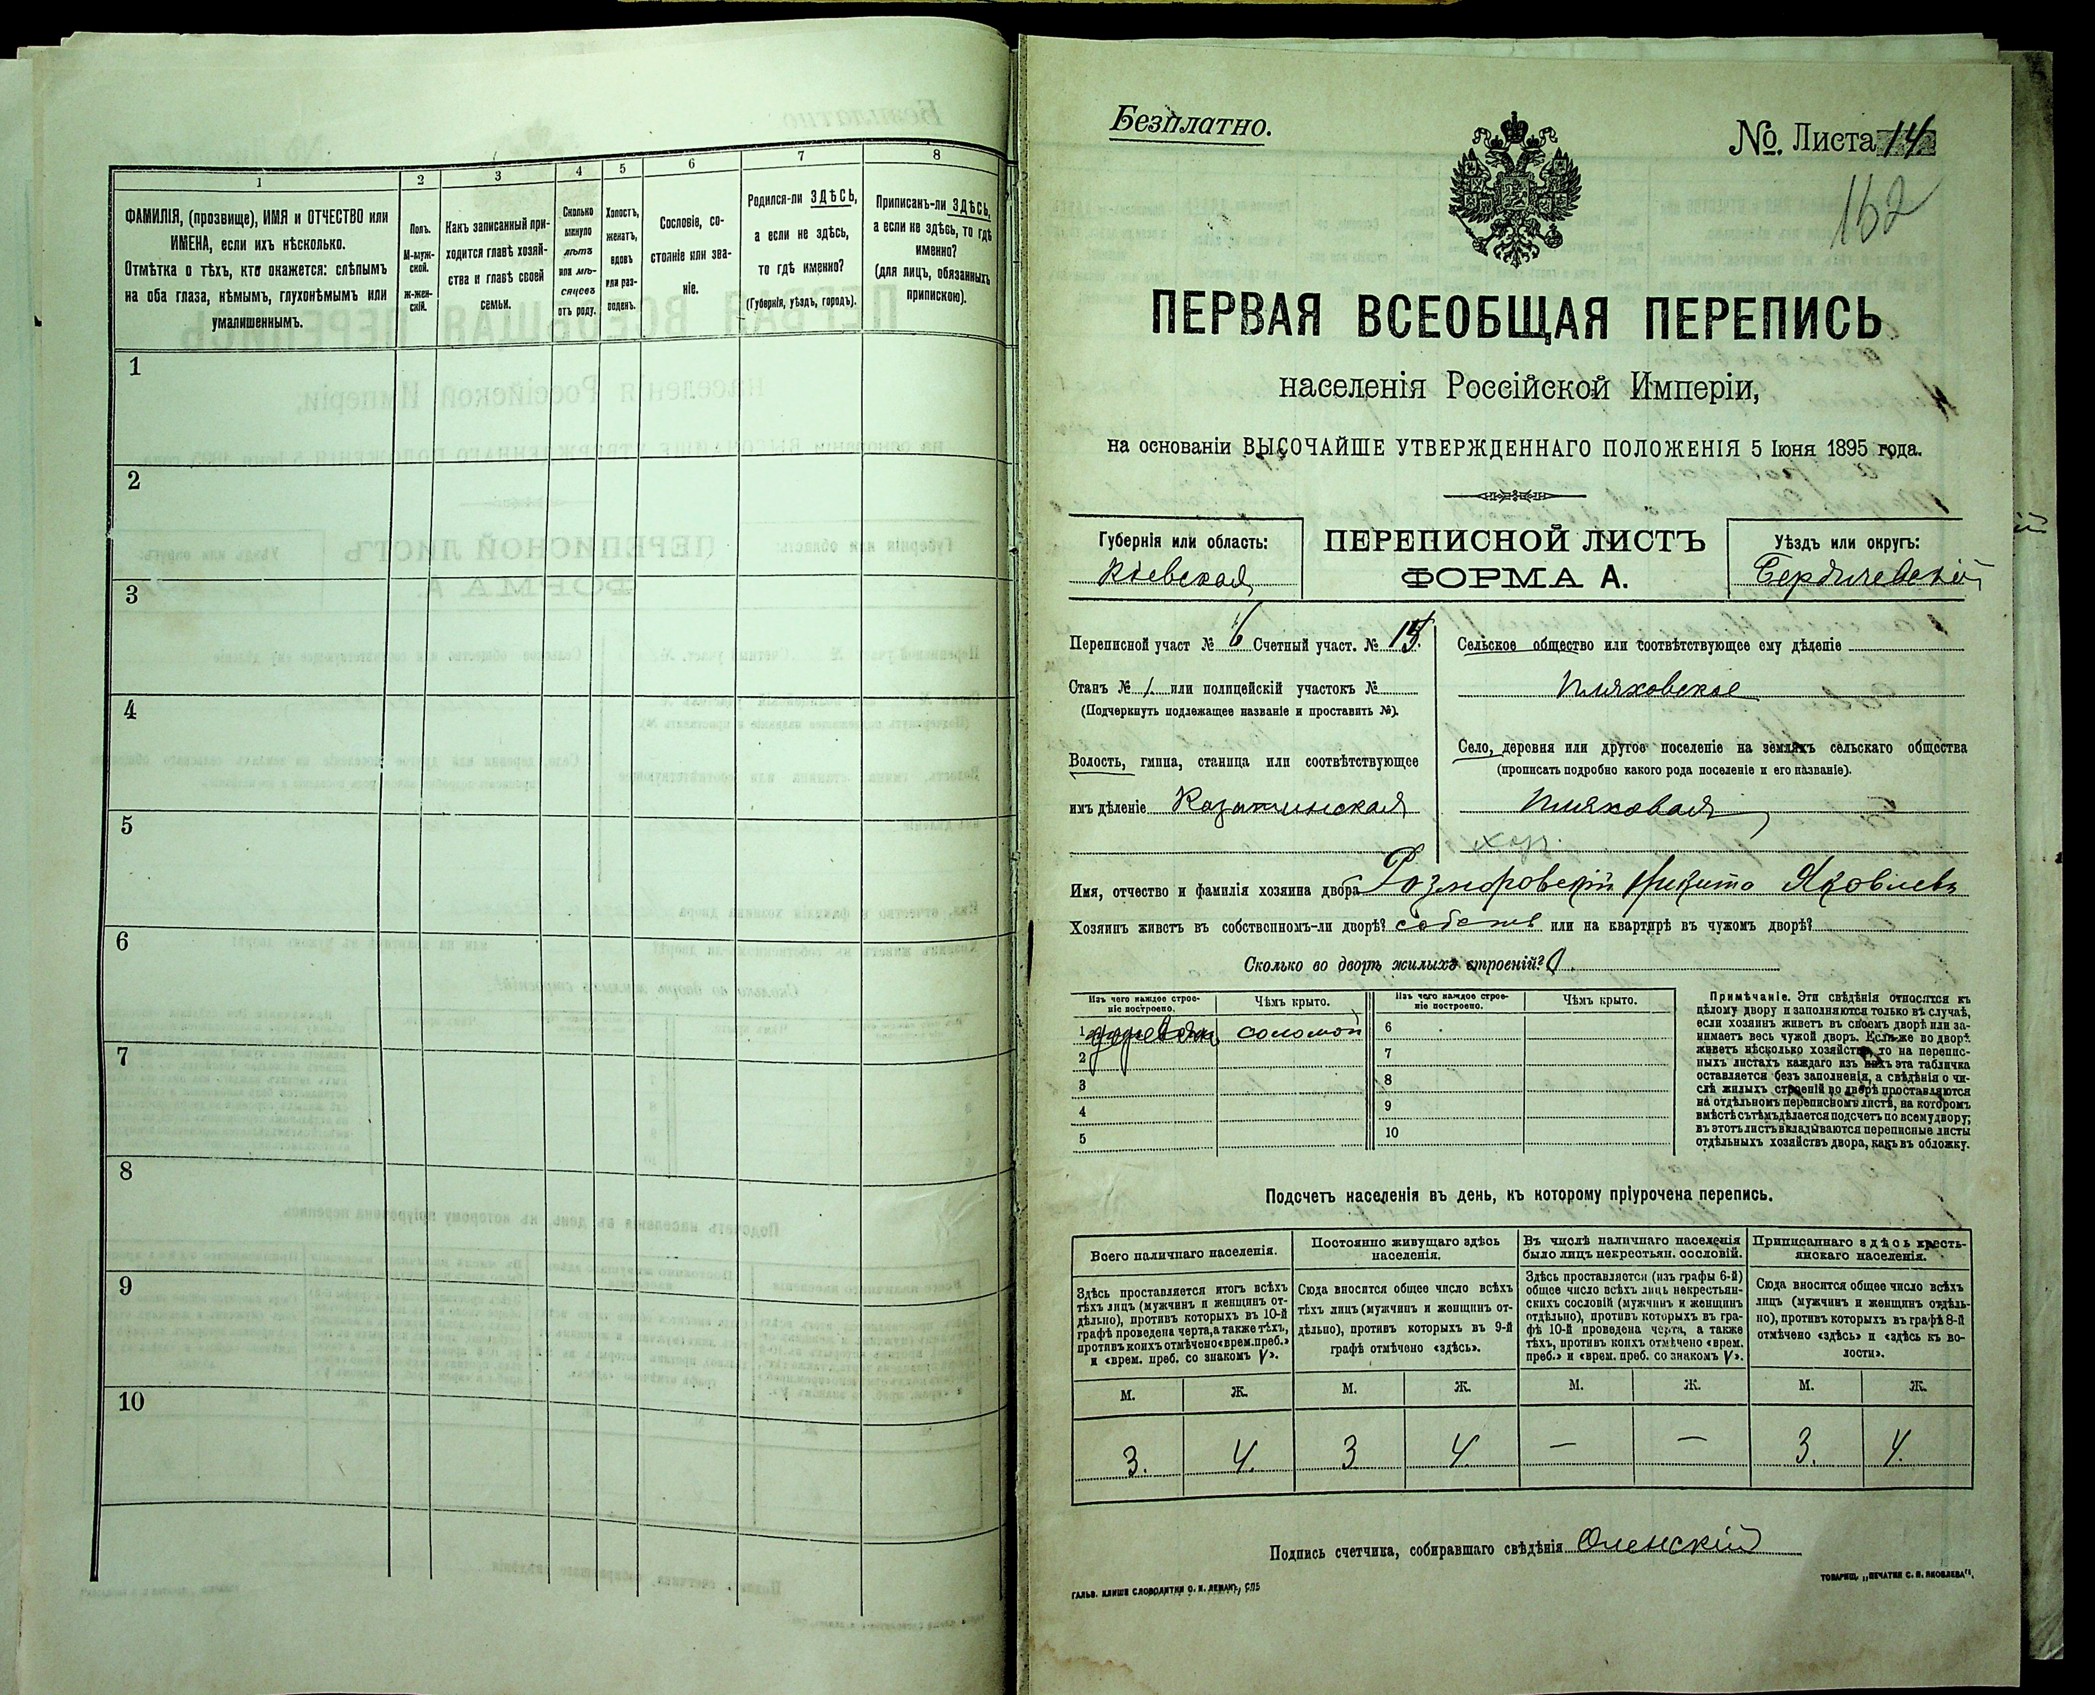 1
2
3
4
5
6
7
8
ФАМИЛІЯ, (прозвище), ИМЯ и ОТЧЕСТВО или
ИМЕНА, если ихъ нѣсколько.
Отмѣтка о тѣхъ, кто окажется: слѣпымъ
на оба глаза, нѣмымъ, глухонѣмымъ или
умалишеннымъ.
Полъ.
М-муж-
ской.
ж-жен-
скій.
Какъ записанный при-
ходится главѣ хозяй-
ства и главѣ своей
семьи.
Сколько
минуло
лѣтъ
или мѣ-
сяцевъ
отъ роду.
Холостъ,
женатъ,
вдовъ
или раз-
веденъ.
Сословіе, со-
стояніе или зва-
ніе.
Родился-ли ЗДѢСЬ,
а если не здѣсь,
то гдѣ именно?
(Губернія, уѣздъ, городъ).
Приписанъ-ли ЗДѢСЬ,
а если не здѣсь, то гдѣ
именно?
(для лицъ, обязанныхъ
припискою).
1
2
3
4
5
6
7
8
9
10
Безплатно.
№ Листа 14
162
ПЕРВАЯ ВСЕОБЩАЯ ПЕРЕПИСЬ
населенія Россійской Имперіи,
на основаніи ВЫСОЧАЙШЕ УТВЕРЖДЕННАГО ПОЛОЖЕНІЯ 5 Іюня 1895 года.
Губернія или область:
Кіевская
ПЕРЕПИСНОЙ ЛИСТЪ
ФОРМА А.
Уѣздъ или округъ:
Бердичевскій
Переписной участ № 6 Счетный участ. № 15.
Станъ № 1. или полицейскій участокъ №
(Подчеркнуть подлежащее названіе и проставить №).
Волость, гмина, станица или соотвѣтствующее
имъ дѣленіе Казатинская
Сельское общество или соотвѣтствующее ему дѣленіе
Пляховское
Село, деревня или другое поселеніе на земляхъ сельскаго общества
(прописать подробно какого рода поселеніе и его названіе).
Пляховая
Имя, отчество и фамилія хозяина двора Никита Яковлевъ
Хозяинъ живетъ въ собственномъ-ли дворѣ? собств или на квартирѣ въ чужомъ дворѣ?
Сколько во дворѣ жилыхъ строеній? 1.
Изъ чего каждое строе-
ніе построено.
Чѣмъ крыто.
Изъ чего каждое строе-
ніе построено.
Чѣмъ крыто.
1 соломой
2
3
4
5
6
7
8
9
10
Примѣчаніе. Эти свѣдѣнія относятся къ
цѣлому двору и заполняются только въ случаѣ,
если хозяинъ живетъ въ своемъ дворѣ или за-
нимаетъ весь чужой дворъ. Если-же во дворѣ
живетъ нѣсколько хозяйствъ, то на перепис-
ныхъ листахъ каждаго изъ нихъ эта табличка
оставляется безъ заполненія, а свѣдѣнія о чи-
слѣ жилыхъ строеній во дворѣ проставляются
на отдѣльномъ переписномъ листѣ, на которомъ
вмѣстѣ съ тѣмъ дѣлается подсчетъ по всему двору;
въ этотъ листъ вкладываются переписные листы
отдѣльныхъ хозяйствъ двора, какъ въ обложку.
Подсчетъ населенія въ день, къ которому пріурочена перепись.
Всего наличнаго населенія.
Постоянно живущаго здѣсь
населенія.
Въ числѣ наличнаго населенія
было лицъ некрестьян. сословій.
Приписаннаго здѣсь кресть-
янскаго населенія.
Здѣсь проставляется итогъ всѣхъ
тѣхъ лицъ (мужчинъ и женщинъ от-
дѣльно), противъ которыхъ въ 10-й
графѣ проведена черта, а также тѣхъ,
противъ коихъ отмѣчено «врем. преб.»
и «врем. преб. со знакомъ V».
Сюда вносится общее число всѣхъ
тѣхъ лицъ (мужчинъ и женщинъ от-
дѣльно), противъ которыхъ въ 9-й
графѣ отмѣчено «здѣсь».
Здѣсь проставляется (изъ графы 6-й)
общее число всѣхъ лицъ некрестьян-
скихъ сословій (мужчинъ и женщинъ
отдѣльно), противъ которыхъ въ гра-
фѣ 10-й проведена черта, а также
тѣхъ, противъ коихъ отмѣчено «врем.
преб.» и «врем. преб. со знакомъ V».
Сюда вносится общее число всѣхъ
лицъ (мужчинъ и женщинъ отдѣль-
но), противъ которыхъ въ графѣ 8-й
отмѣчено «здѣсь» и «здѣсь къ во-
лости».
М. Ж. М. Ж. М. Ж. М. Ж.
3. 4. 3 4 — — 3. 4.
Подпись счетчика, собиравшаго свѣдѣнія Оленскій
ГАЛЬВ. КЛИШЕ СЛОВОЛИТНИ О. И. ЛЕМАНЪ, СПБ
ТОВАРИЩ. „ПЕЧАТНЯ С. П. ЯКОВЛЕВА".